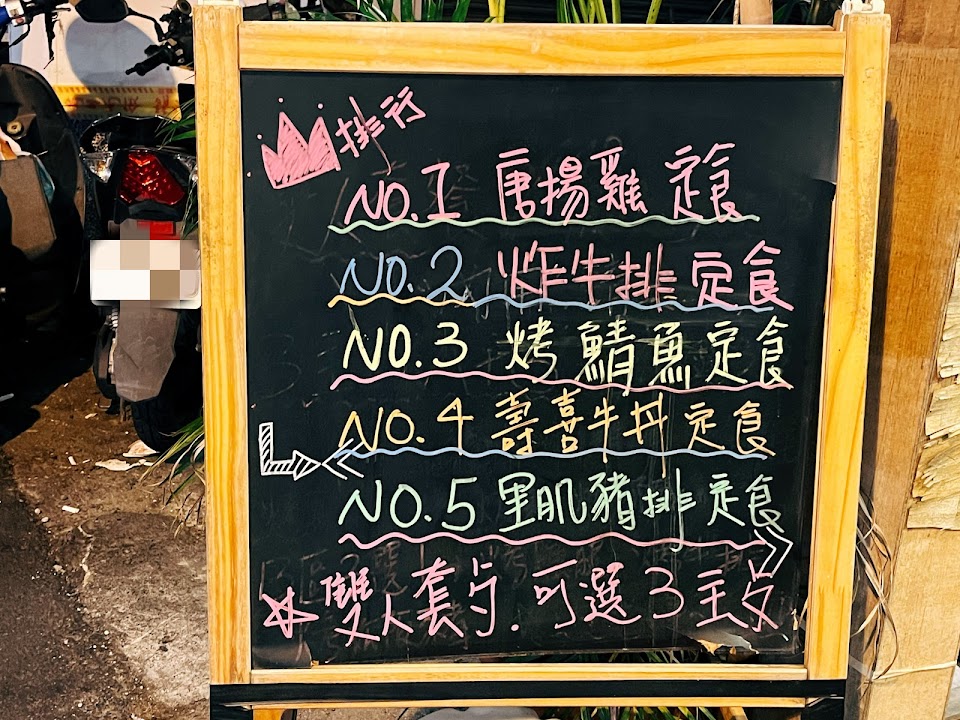 排行
NO.1 唐揚雞 定食
NO.2 炸牛排 定食
NO.3 烤鯖魚定食
NO.4 壽喜牛丼 定食
NO.5 里肌豬排 定食
雙人套歺. 可選3主